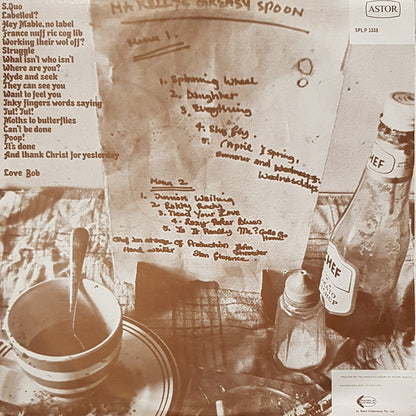 S.Quo
Labelled?
Hey Mable, no label
France nuff ric cog lib
Working their wol off?
Struggle
What isn't who isn't
Where are you?
Hyde and seek
They can see you
Want to feel you
Inky fingers words saying
Tut! Tut!
Moths to butterflies
Can't be done
Poop!
It's done
And thank Christ for yesterday
Love Bob
MA KELLY'S GREASY SPOON
Menu 1
1. Spinning Wheel
2. Daughter
3. Everything
4. Shy Fly
5. (April) Spring,
Summer and Wednesdays
Menu 2
1. Junior's Wailing
2. Lakky Lady
3. Need Your Love
4. Lazy Poker Blues
5. Is It Really Me? Gotta Go
Home
in charge of Production John
Schroeder
ASTOR
SPLP 1338
CHEF
CHEF